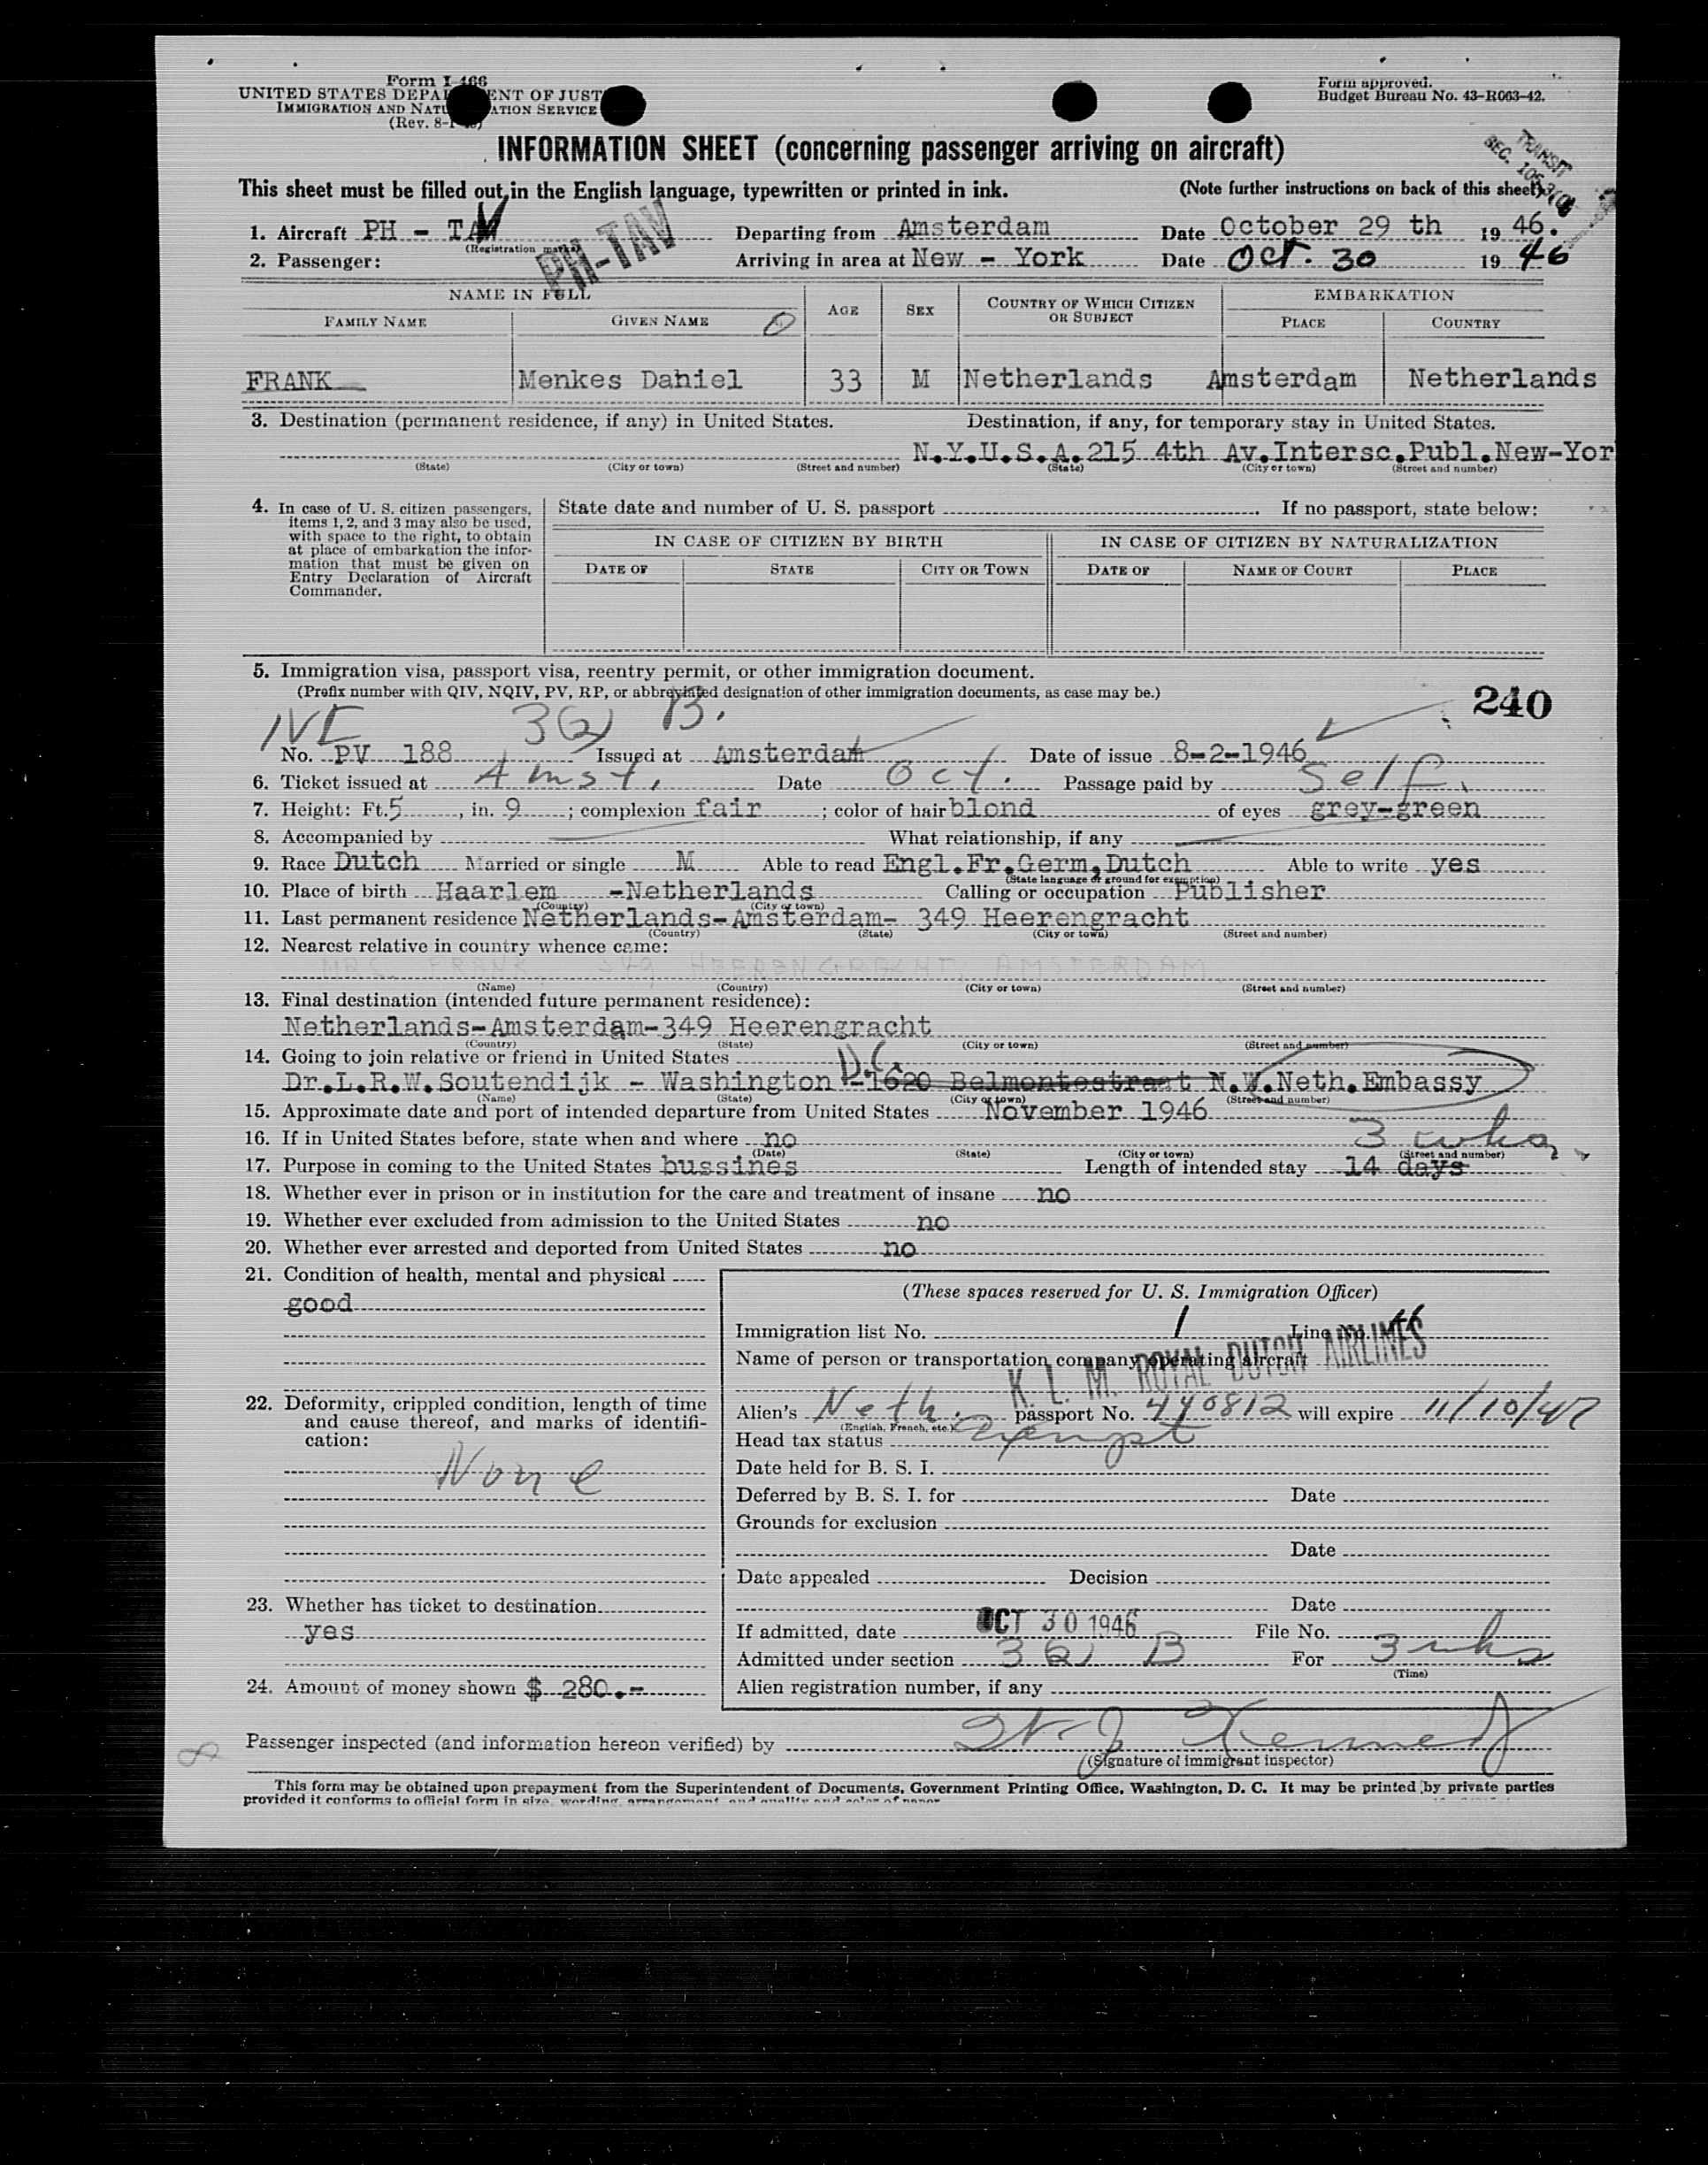 Form I-466
UNITED STATES DEPA ENT OF JUST
IMMIGRATION AND NATU ATION SERVICE
(Rev. 8-
Form approved.
Budget Bureau No. 43-R063-42.
TRANSIT
SEC. 105.3(
INFORMATION SHEET (concerning passenger arriving on aircraft)
This sheet must be filled out in the English language, typewritten or printed in ink. (Note further instructions on back of this sheet)
1. Aircraft PH - TAV Departing from Amsterdam Date October 29 th 19 46.
(Registration marks)
PH-TAV
2. Passenger: Arriving in area at New - York Date Oct. 30 19 46
NAME IN FULL AGE SEX COUNTRY OF WHICH CITIZEN OR SUBJECT EMBARKATION
FAMILY NAME GIVEN NAME PLACE COUNTRY
FRANK Menkes Daniel 33 M Netherlands Amsterdam Netherlands
3. Destination (permanent residence, if any) in United States. Destination, if any, for temporary stay in United States.
N.Y.U.S.A. 215 4th Av.Intersc.Publ.New-Yor
(State) (City or town) (Street and number) (State) (City or town) (Street and number)
4. In case of U. S. citizen passengers, items 1, 2, and 3 may also be used, with space to the right, to obtain at place of embarkation the information that must be given on Entry Declaration of Aircraft Commander.
State date and number of U. S. passport If no passport, state below:
IN CASE OF CITIZEN BY BIRTH IN CASE OF CITIZEN BY NATURALIZATION
DATE OF STATE CITY OR TOWN DATE OF NAME OF COURT PLACE
5. Immigration visa, passport visa, reentry permit, or other immigration document.
(Prefix number with QIV, NQIV, PV, RP, or abbreviated designation of other immigration documents, as case may be.)
240
3(2) B.
No. PV 188 Issued at Amsterdam Date of issue 8-2-1946
6. Ticket issued at Amst. Date Oct. Passage paid by Self
7. Height: Ft. 5, in. 9; complexion fair; color of hair blond of eyes grey-green
8. Accompanied by What relationship, if any
9. Race Dutch Married or single M Able to read Engl.Fr.Germ,Dutch Able to write yes
(State language or ground for exemption)
10. Place of birth Haarlem -Netherlands Calling or occupation Publisher
(Country) (City or town)
11. Last permanent residence Netherlands-Amsterdam- 349 Heerengracht
(Country) (State) (City or town) (Street and number)
12. Nearest relative in country whence came:
MRS. FRANK 349 HEERENGRACHT, AMSTERDAM
(Name) (Country) (City or town) (Street and number)
13. Final destination (intended future permanent residence):
Netherlands-Amsterdam-349 Heerengracht
(Country) (State) (City or town) (Street and number)
14. Going to join relative or friend in United States
Dr.L.R.W.Soutendijk - Washington D.C -1620 Belmontestreet N.W.Neth.Embassy
(Name) (State) (City or town) (Street and number)
15. Approximate date and port of intended departure from United States November 1946
16. If in United States before, state when and where no
(Date) (State) (City or town) (Street and number)
3 wks
17. Purpose in coming to the United States bussines Length of intended stay 14 days
18. Whether ever in prison or in institution for the care and treatment of insane no
19. Whether ever excluded from admission to the United States no
20. Whether ever arrested and deported from United States no
21. Condition of health, mental and physical
good
22. Deformity, crippled condition, length of time and cause thereof, and marks of identification:
None
23. Whether has ticket to destination
yes
24. Amount of money shown $ 280.-
(These spaces reserved for U. S. Immigration Officer)
Immigration list No. 1 Line No. 46
Name of person or transportation company operating aircraft
K. L. M. ROYAL DUTCH AIRLINES
Alien's Neth. passport No. 440812 will expire 11/10/47
(English, French, etc.)
Head tax status exempt
Date held for B. S. I.
Deferred by B. S. I. for Date
Grounds for exclusion
Date
Date appealed Decision
Date
If admitted, date OCT 30 1946 File No.
Admitted under section 3(2) B For 3 wks
(Time)
Alien registration number, if any
Passenger inspected (and information hereon verified) by
(Signature of immigrant inspector)
This form may be obtained upon prepayment from the Superintendent of Documents, Government Printing Office, Washington, D. C. It may be printed by private parties
provided it conforms to official form in size, wording, arrangement, and quality and color of paper